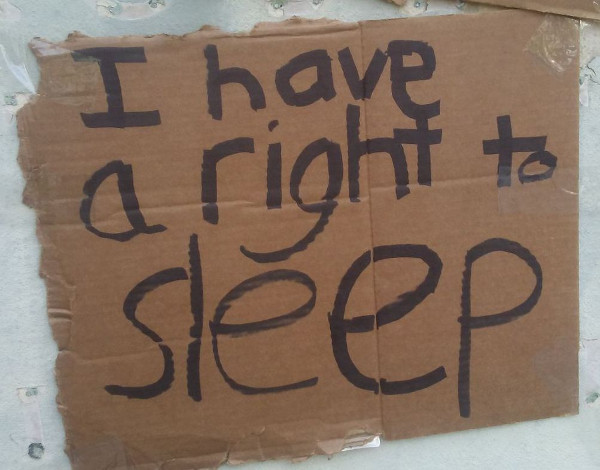 I have
a right to
sleep